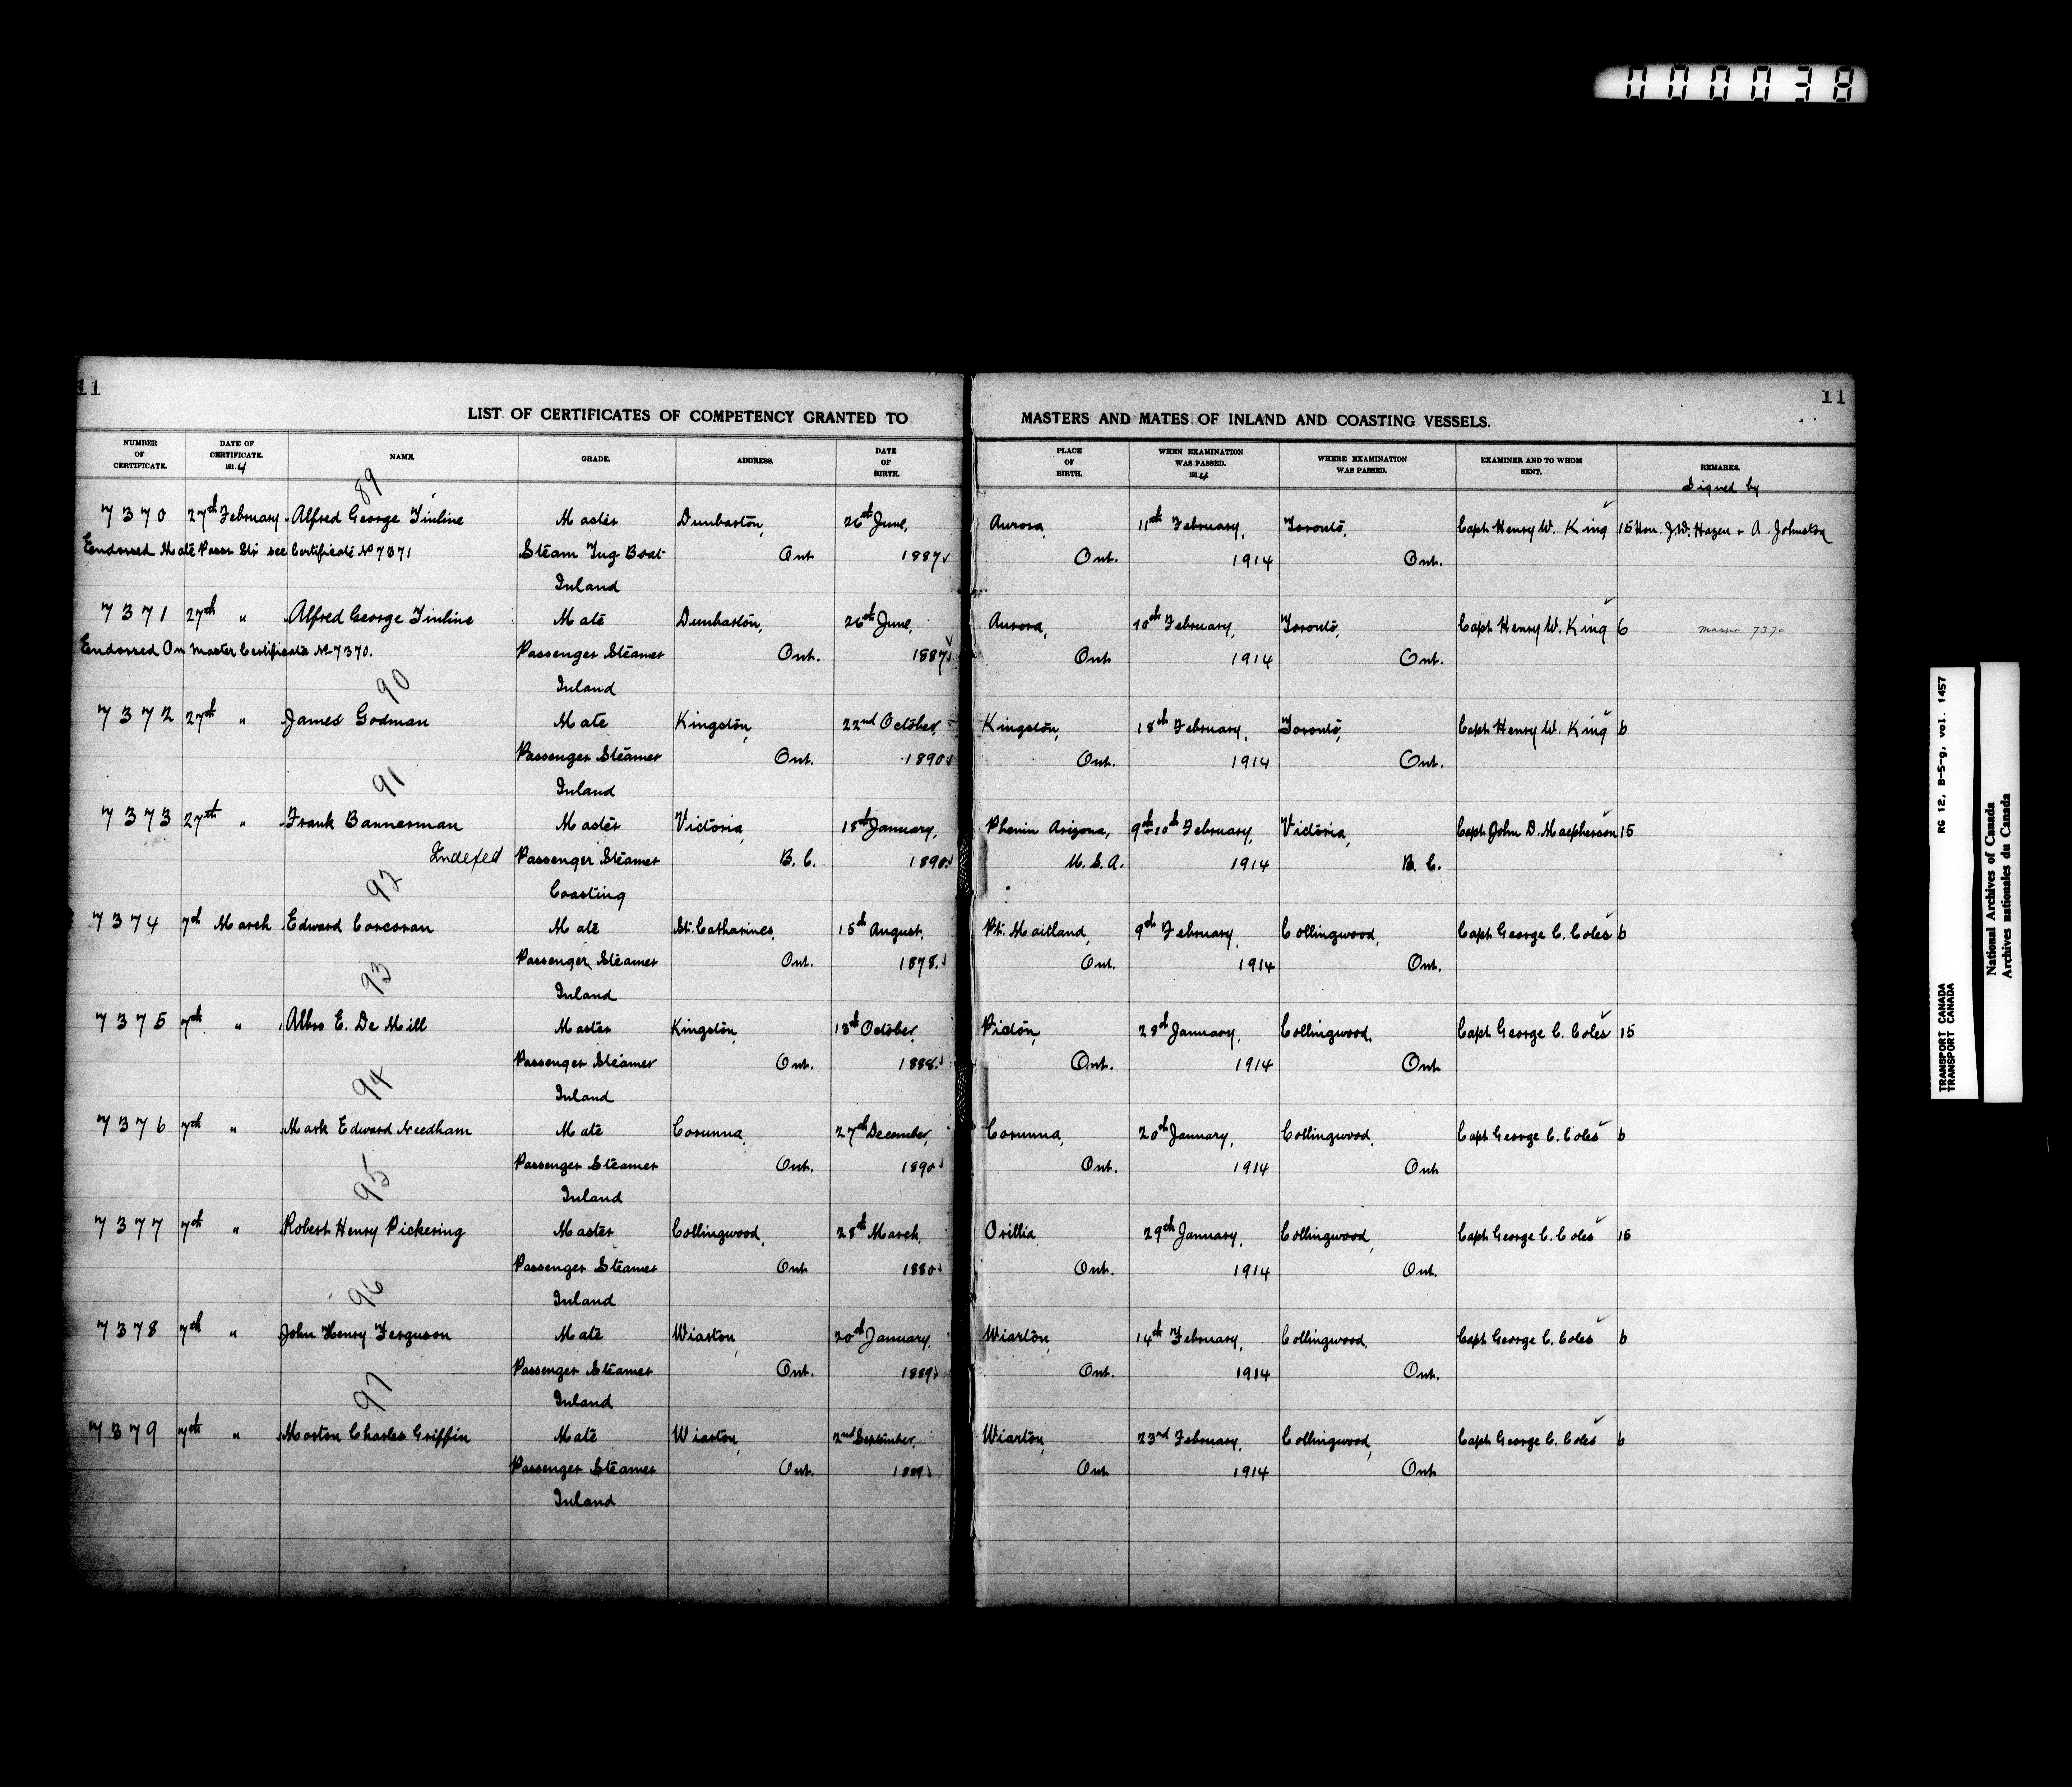 000038
11
11
LIST OF CERTIFICATES OF COMPETENCY GRANTED TO MASTERS AND MATES OF INLAND AND COASTING VESSELS.
NUMBER OF CERTIFICATE. DATE OF CERTIFICATE. 1914 NAME. GRADE. ADDRESS. DATE OF BIRTH. PLACE OF BIRTH. WHEN EXAMINATION WAS PASSED. 1914 WHERE EXAMINATION WAS PASSED. EXAMINER AND TO WHOM SENT. REMARKS.
Signed by
89
7370 27th February Alfred George Tinline Master Dunbarton, 26th June, Aurora, 11th February, Toronto, Capt Henry W. King 15 Hon. J.W. Hazen & A. Johnston
Endorsed Mate Passr Str see Certificate No 7371 Steam Tug Boat Ont 1887 Ont. 1914 Ont.
Inland
7371 27th " Alfred George Tinline Mate Dunbarton, 26th June, Aurora, 10th February, Toronto, Capt Henry W. King 6 Master 7370
Endorsed On Master Certificate No 7370. Passenger Steamer Ont. 1887 Ont 1914 Ont.
Inland
90
7372 27th " James Godman Mate Kingston, 22nd October, Kingston, 18th February, Toronto, Capt Henry W. King 6
Passenger Steamer Ont. 1890 Ont. 1914 Ont.
91 Inland
7373 27th " Frank Bannerman Master Victoria, 15th January, Phenin Arizona, 9th-10th February, Victoria, Capt John D. Macpherson 15
Indexed Passenger Steamer B. C. 1890. U.S.A. 1914 B. C.
92 Coasting
7374 7th March Edward Corcoran Mate St. Catharines, 15th August, Pt. Maitland, 9th February, Collingwood, Capt George C. Coles 6
Passenger Steamer Ont. 1878. Ont. 1914 Ont.
93 Inland
7375 7th " Albro E. De Mill Master Kingston, 13th October, Picton, 28th January, Collingwood, Capt George C. Coles 15
Passenger Steamer Ont. 1888. Ont. 1914 Ont
94 Inland
7376 7th " Mark Edward Needham Mate Corunna, 27th December, Corunna, 20th January, Collingwood, Capt George C. Coles 6
Passenger Steamer Ont. 1890 Ont. 1914 Ont
95 Inland
7377 7th " Robert Henry Pickering Master Collingwood, 28th March, Orillia, 29th January, Collingwood, Capt George C. Coles 15
Passenger Steamer Ont 1880 Ont. 1914 Ont.
96 Inland
7378 7th " John Henry Ferguson Mate Wiarton, 20th January, Wiarton, 14th February, Collingwood, Capt George C. Coles 6
Passenger Steamer Ont. 1889 Ont. 1914 Ont.
97 Inland
7379 7th " Morton Charles Griffin Mate Wiarton, 2nd September, Wiarton, 23rd February, Collingwood, Capt George C. Coles 6
Passenger Steamer Ont. 1889 Ont 1914 Ont
Inland
TRANSPORT CANADA RG 12, B-5-g, vol. 1457
TRANSPORT CANADA
National Archives of Canada
Archives nationales du Canada